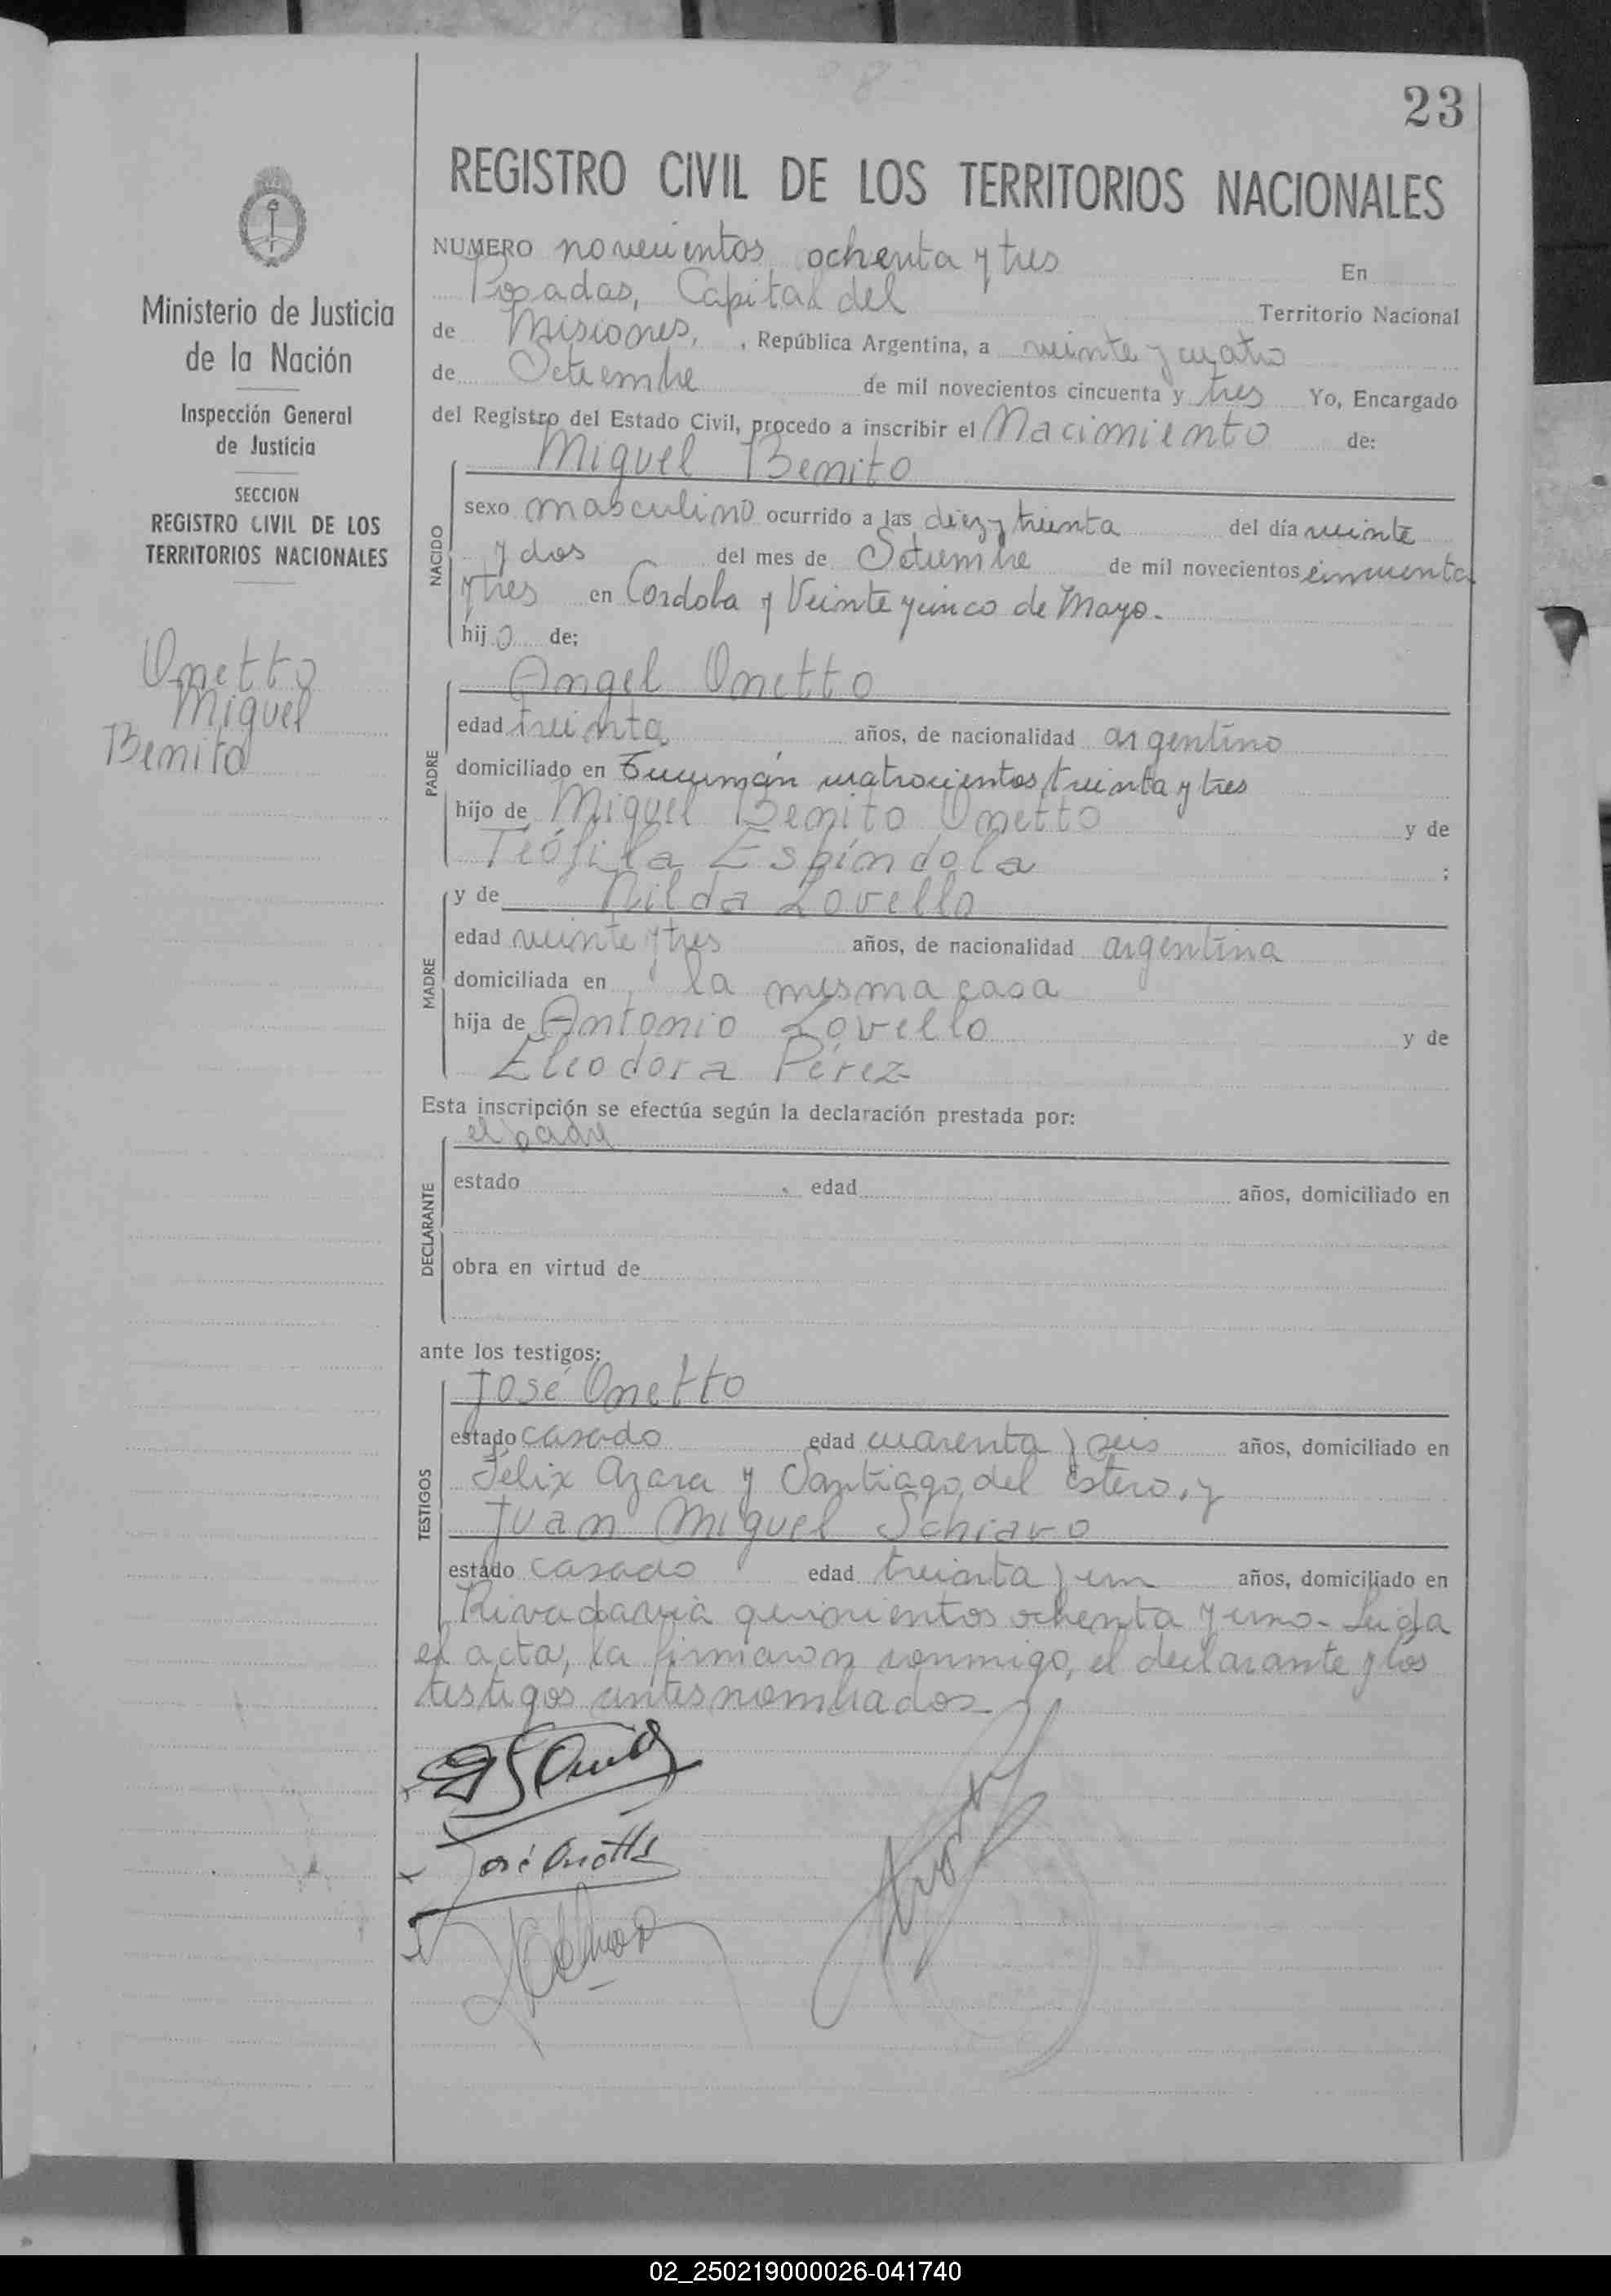 23
REGISTRO CIVIL DE LOS TERRITORIOS NACIONALES
Ministerio de Justicia
de la Nación
Inspección General
de Justicia
SECCION
REGISTRO CIVIL DE LOS
TERRITORIOS NACIONALES
Onetto
Miguel
Benito
NUMERO novecientos ochenta y tres En
Posadas, Capital del Territorio Nacional
de Misiones, , República Argentina, a veinte y cuatro
de Setiembre de mil novecientos cincuenta y tres Yo, Encargado
del Registro del Estado Civil, procedo a inscribir el Nacimiento de:
NACIDO
Miguel Benito
sexo masculino ocurrido a las diez y treinta del día veinte
y dos del mes de Setiembre de mil novecientos cincuenta
y tres en Cordoba y Veinte y cinco de Mayo.
hijo de:
PADRE
Angel Onetto
edad treinta años, de nacionalidad argentino
domiciliado en Tucumán cuatrocientos treinta y tres
hijo de Miguel Benito Onetto y de
Teófila Espíndola ;
MADRE
y de Nilda Lovello
edad veinte y tres años, de nacionalidad argentina
domiciliada en la misma casa
hija de Antonio Lovello y de
Eleodora Pérez
Esta inscripción se efectúa según la declaración prestada por:
DECLARANTE
el padre
estado , edad años, domiciliado en
obra en virtud de
ante los testigos:
TESTIGOS
José Onetto
estado casado edad cuarenta y seis años, domiciliado en
Félix Azara y Santiago del Estero, y
Juan Miguel Schiavo
estado casado edad treinta y un años, domiciliado en
Rivadavia quinientos ochenta y uno- Leida
el acta, la firmaron conmigo, el declarante y los
testigos antes nombrados-
José Onetto
02_250219000026-041740